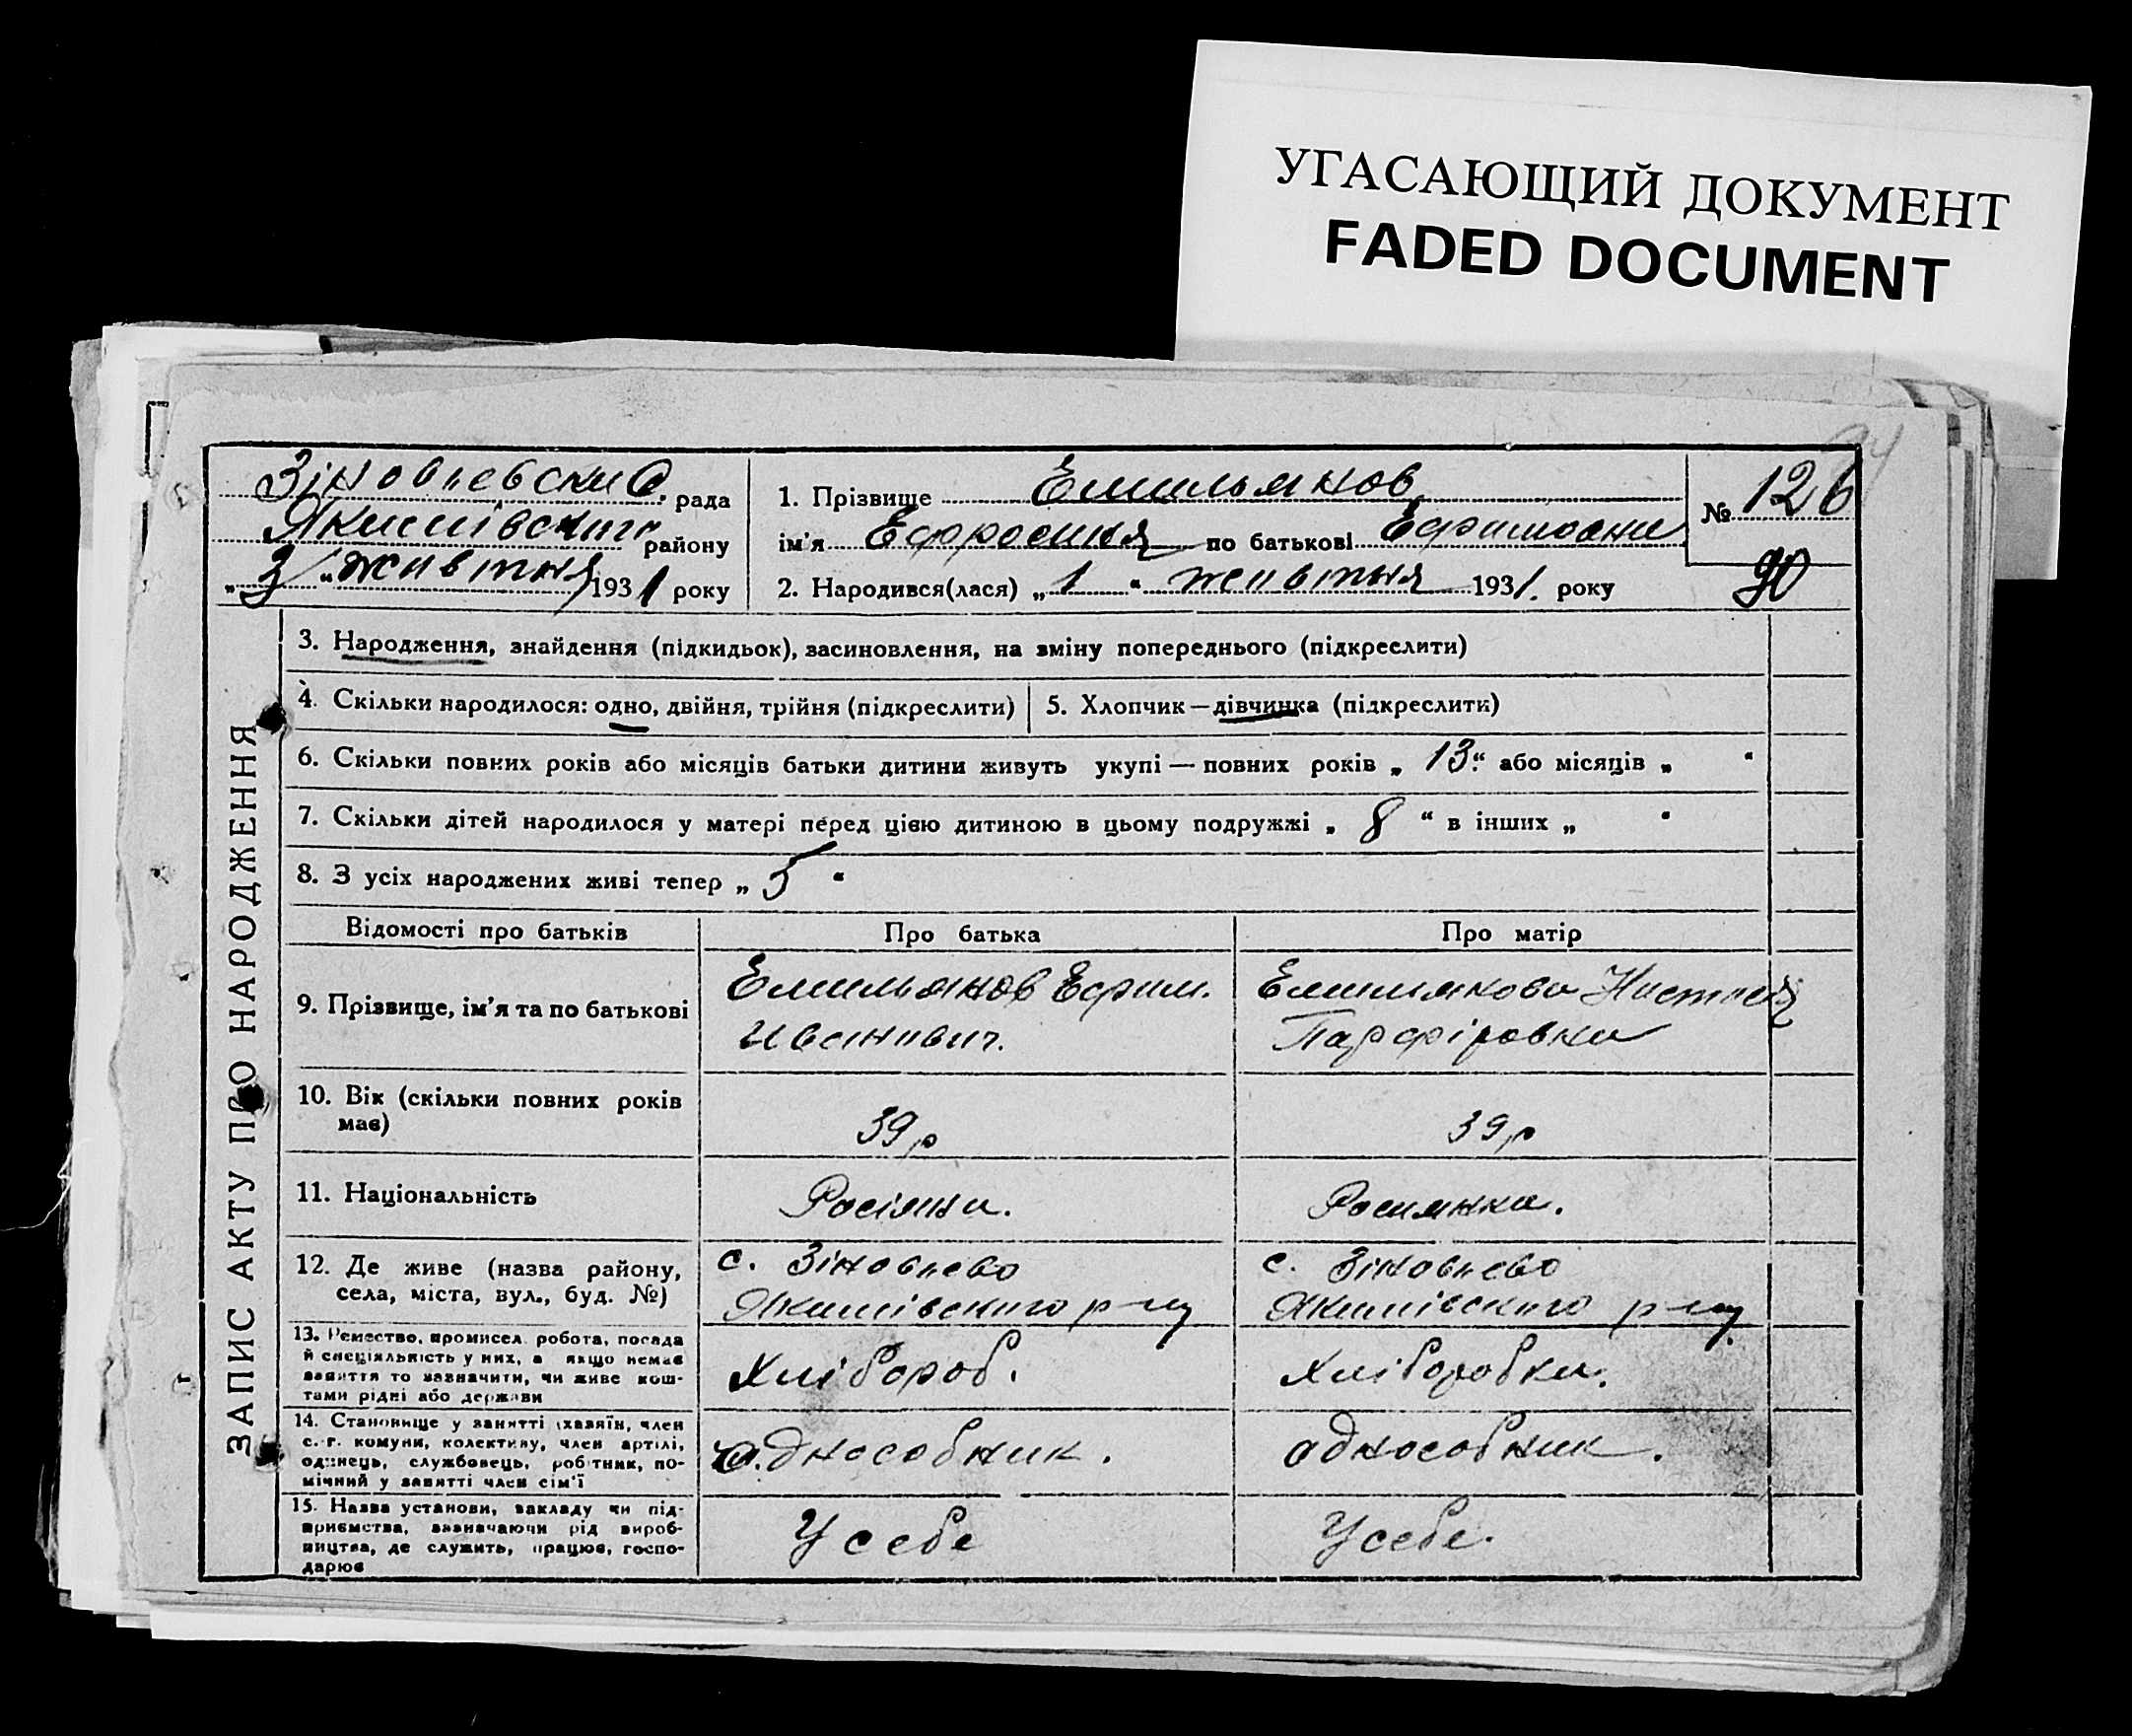 УГАСАЮЩИЙ ДОКУМЕНТ
FADED DOCUMENT
Зіновьевски С. рада
Якимівского району
„3“ жовтня 1931 року
1. Прізвище Емильянов
ім'я Ефросиния по батькові Ефимовна
2. Народився(лася) „1“ жовтня 1931. року
№ 126
90
ЗАПИС АКТУ ПРО НАРОДЖЕННЯ
3. Народження, знайдення (підкидьок), засиновлення, на зміну попереднього (підкреслити)
4. Скільки народилося: одно, двійня, трійня (підкреслити)
5. Хлопчик—дівчинка (підкреслити)
6. Скільки повних років або місяців батьки дитини живуть укупі — повних років „13“ або місяців „ “
7. Скільки дітей народилося у матері перед цією дитиною в цьому подружжі „8“ в інших „ “
8. З усіх народжених живі тепер „5“
Відомості про батьків Про батька Про матір
9. Прізвище, ім'я та по батькові
Емильянов Ефим.
Иванович.
Емильянова Настасия
Парфіровна
10. Вік (скільки повних років має)
39 р
39 р
11. Національність
Росіяни.
Росиянка.
12. Де живе (назва району,
села, міста, вул., буд. №)
с. Зіновьево
Якимівского р-ну
с. Зіновьево
Якимівского р-ну
13. Ремество, промисел, робота, посада
й спеціяльність у них, а якщо немає
заняття то зазначити, чи живе кош-
тами рідні або держави
Хлібороб.
Хліборобка.
14. Становище у занятті (хазяїн, член
с.-г. комуни, колективу, член артілі,
одинець, службовець, робітник, по-
мічний у занятті член сім'ї
Однособник.
однособник.
15. Назва установи, закладу чи під-
приємства, зазначаючи рід вироб-
ництва, де служить, працює, госпо-
дарює
У себе
У себе.